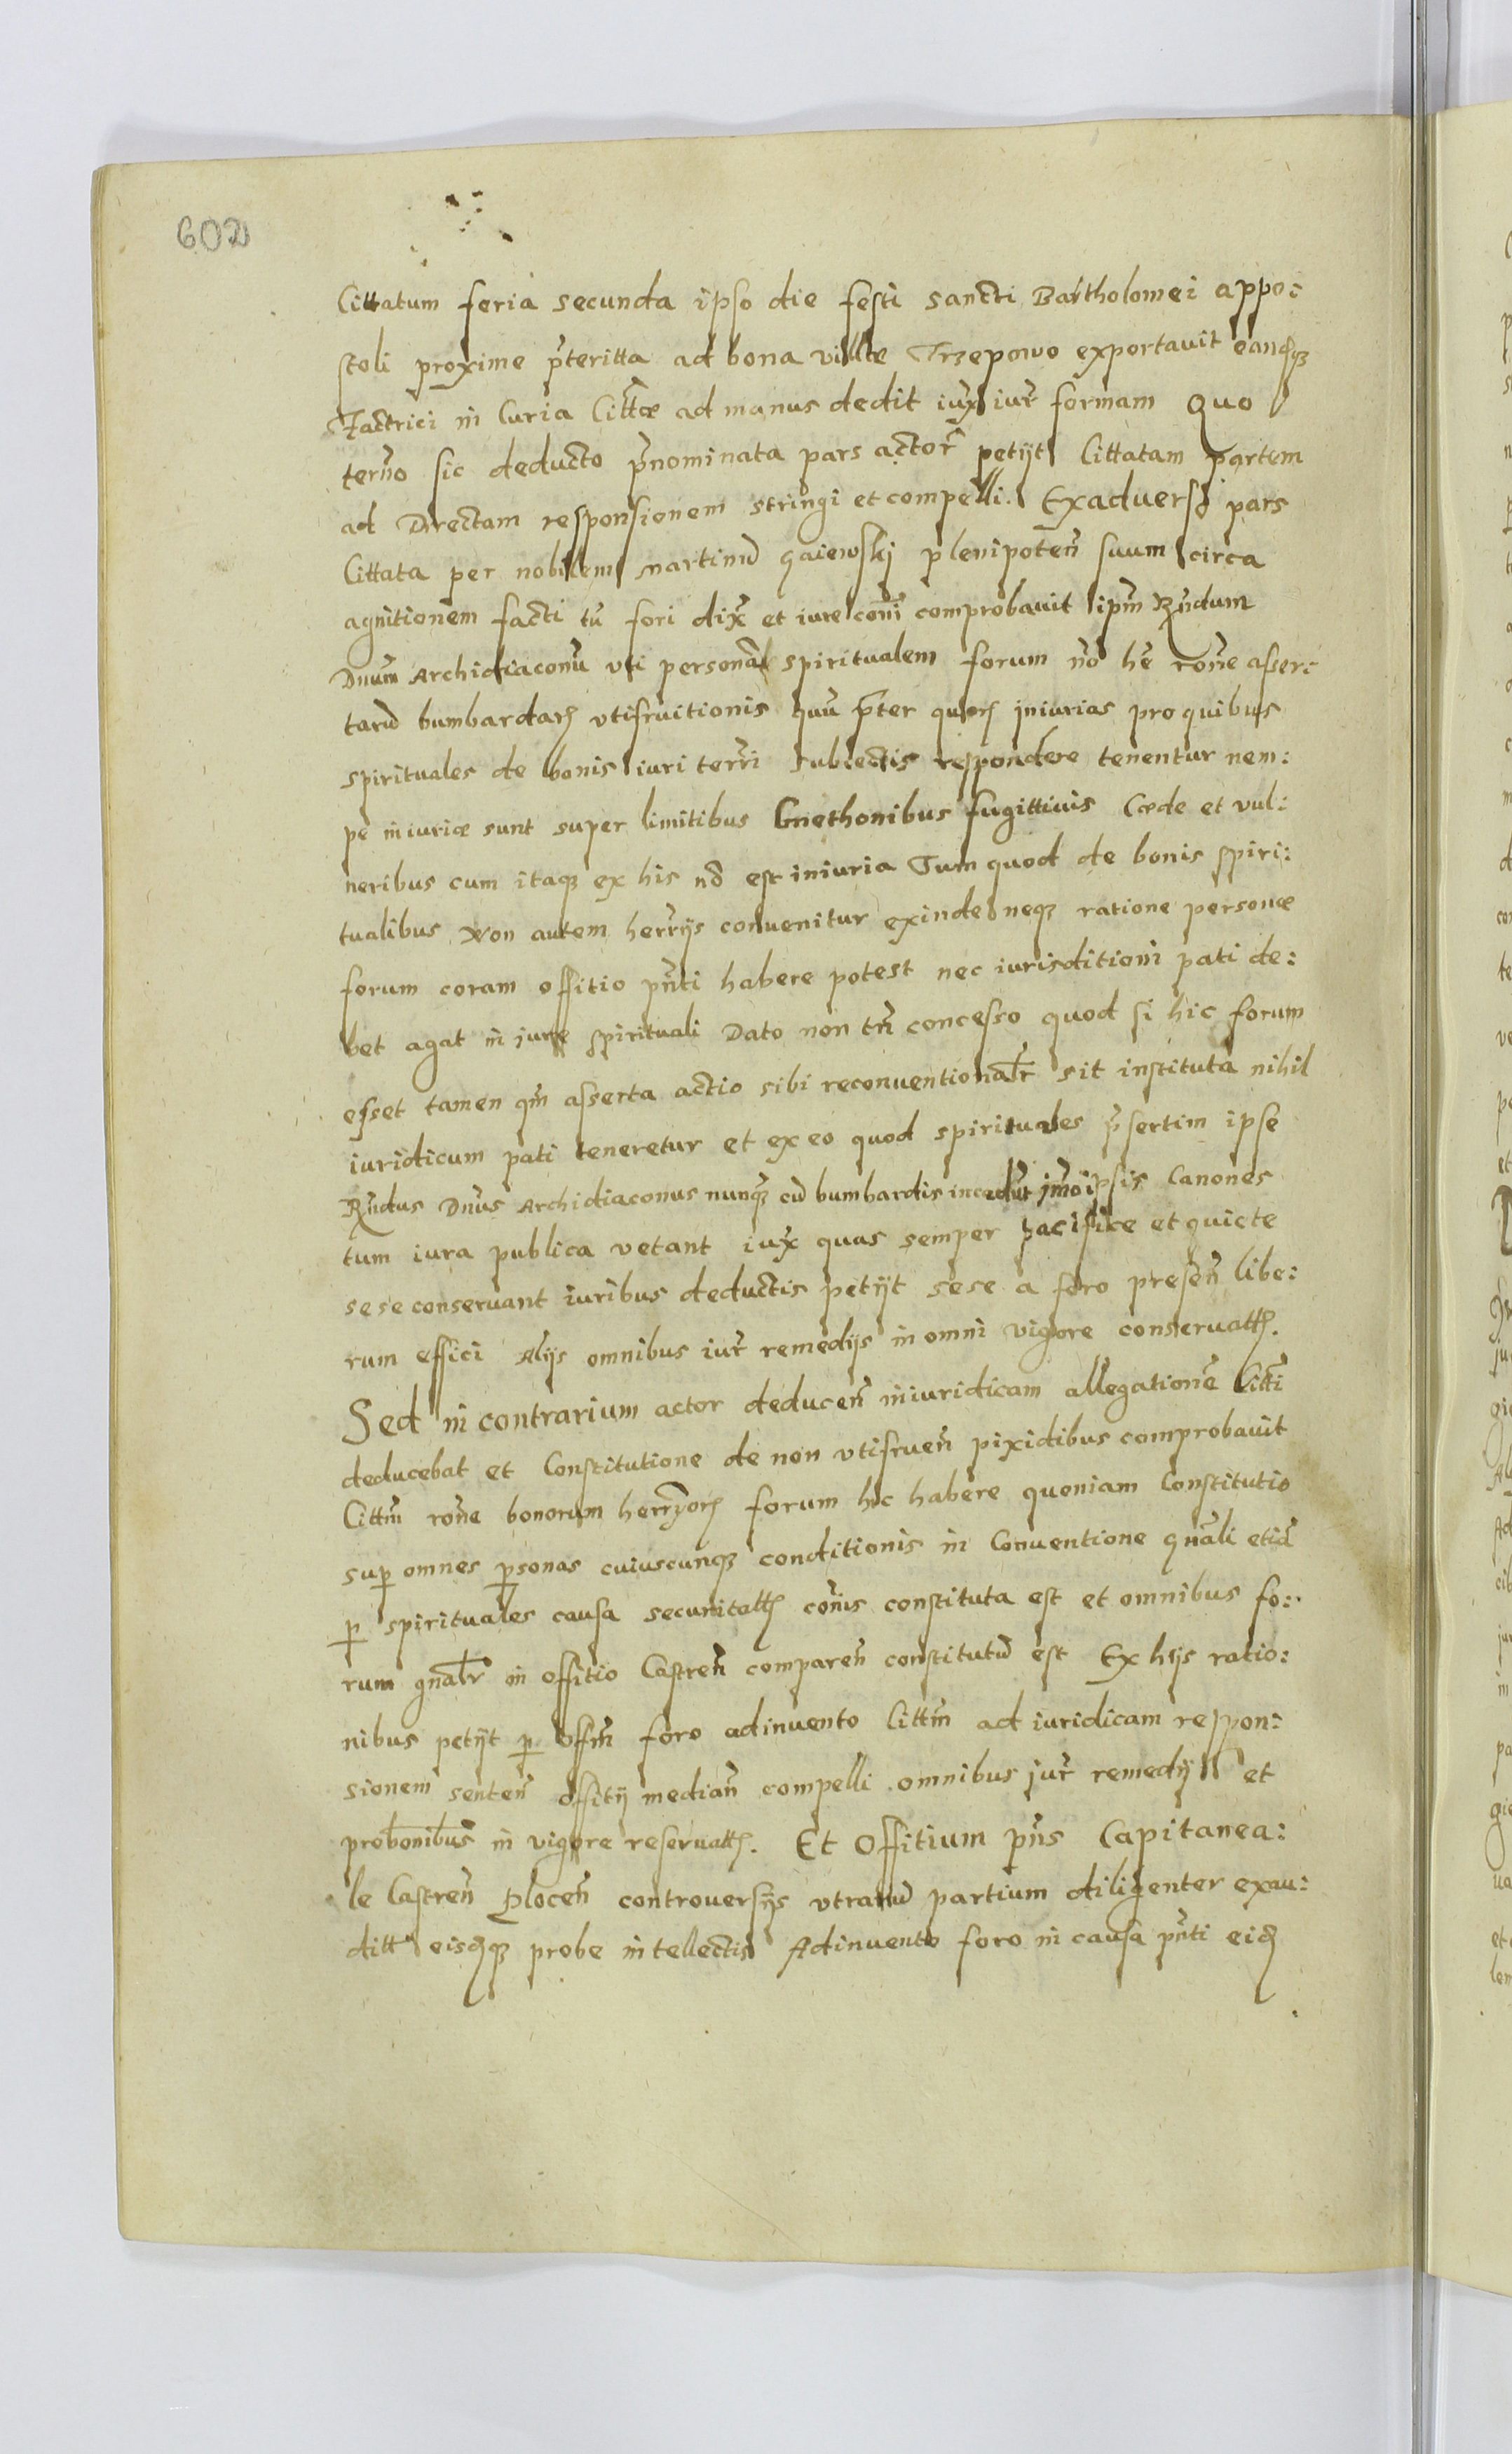 602
Cittatum feria secunda ipso die festi sancti Bartholomei appo:
stoli proxime p̃teritta ad bona villæ Trzepowo exportavit eandq3
Factrici in Curia Citt̃æ ad manus dedit iux̃ iur̃ formam Quo
ter̃no sic deducto p̃nominata pars actor̃ petijt Cittatam partem
ad Directam responsionem stringi et compelli. Ex adverso pars
Cittata per nobilem Martinũ Gaiewskj plenipoten̄ suum circa
agnitionem facti tũ fori dix̃ et iure com̃i comprobavit ip̃m Rñdum
Dnũm Archidiaconũ uti personã spiritualem forum ño hẽ roñe asser:
tarũ bumbardarȝ utifruitionis quũ p̃ter quorȝ iniurias pro quibus
spirituales de bonis iuri ter̃ri subiectis respondere tenentur nem:
pe iniuriæ sunt super limitibus Gnethonibus fugittivis Cæde et vul:
neribus cum itaq3 ex his nõ est iniuria Tum quod de bonis spiri:
tualibus Non autem her̃rijs convenitur exinde neq3 ratione personæ
forum coram offitio pñti habere potest nec iurisditioni pati de:
bet agat in jure spirituali Dato non tñ concesso quod si hic forum
esset tamen qm̃ asserta actio sibi reconventionalr̃ sit instituta nihil
iuridicum pati teneretur et ex eo quod spirituales p̃sertim ipse
Rñdus Dnũs Archidiaconus nunq3 cũ bumbardis incedũt im̃o ipsis Canones
tum iura publica vetant iux̃ quas semper pacifice et quiete
sese conservant iuribus deductis petijt sese a foro presen̄ libe:
rum effici Alijs omnibus iur̃ remedijs in omni vigore conservattȝ.
Sed in contrarium actor deducen̄ iniuridicam allegationẽ Citt̃i
deducebat et Constitutione de non utifruen̄ pixidibus comprobavit
Cittm̃ roñe bonorum her̃ryorȝ forum hic habere quoniam Constitutio
sup̱ omnes p̱sonas cuiuscunq3 conditionis in Conventione gnãli etiã
p̱ spirituales causa securitattȝ com̃is constituta est et omnibus fo:
rum gnalr̃ in offitio Castren̄ comparen̄ constitutũ est Ex hijs ratio:
nibus petijt p̱ offm̃ foro adinvento Cittm̃ ad iuridicam respon:
sionem senten̄ offitij median̄ compelli omnibus jur̃ remedijs et
probonibus̃ in vigore reservattȝ. Et Offitium pñs Capitanea:
le Castren̄ Plocen̄ controversijs utrarũ partium diligenter exau:
ditt eisq3 probe intellectis Adinvento foro in causa pñti eidȝ